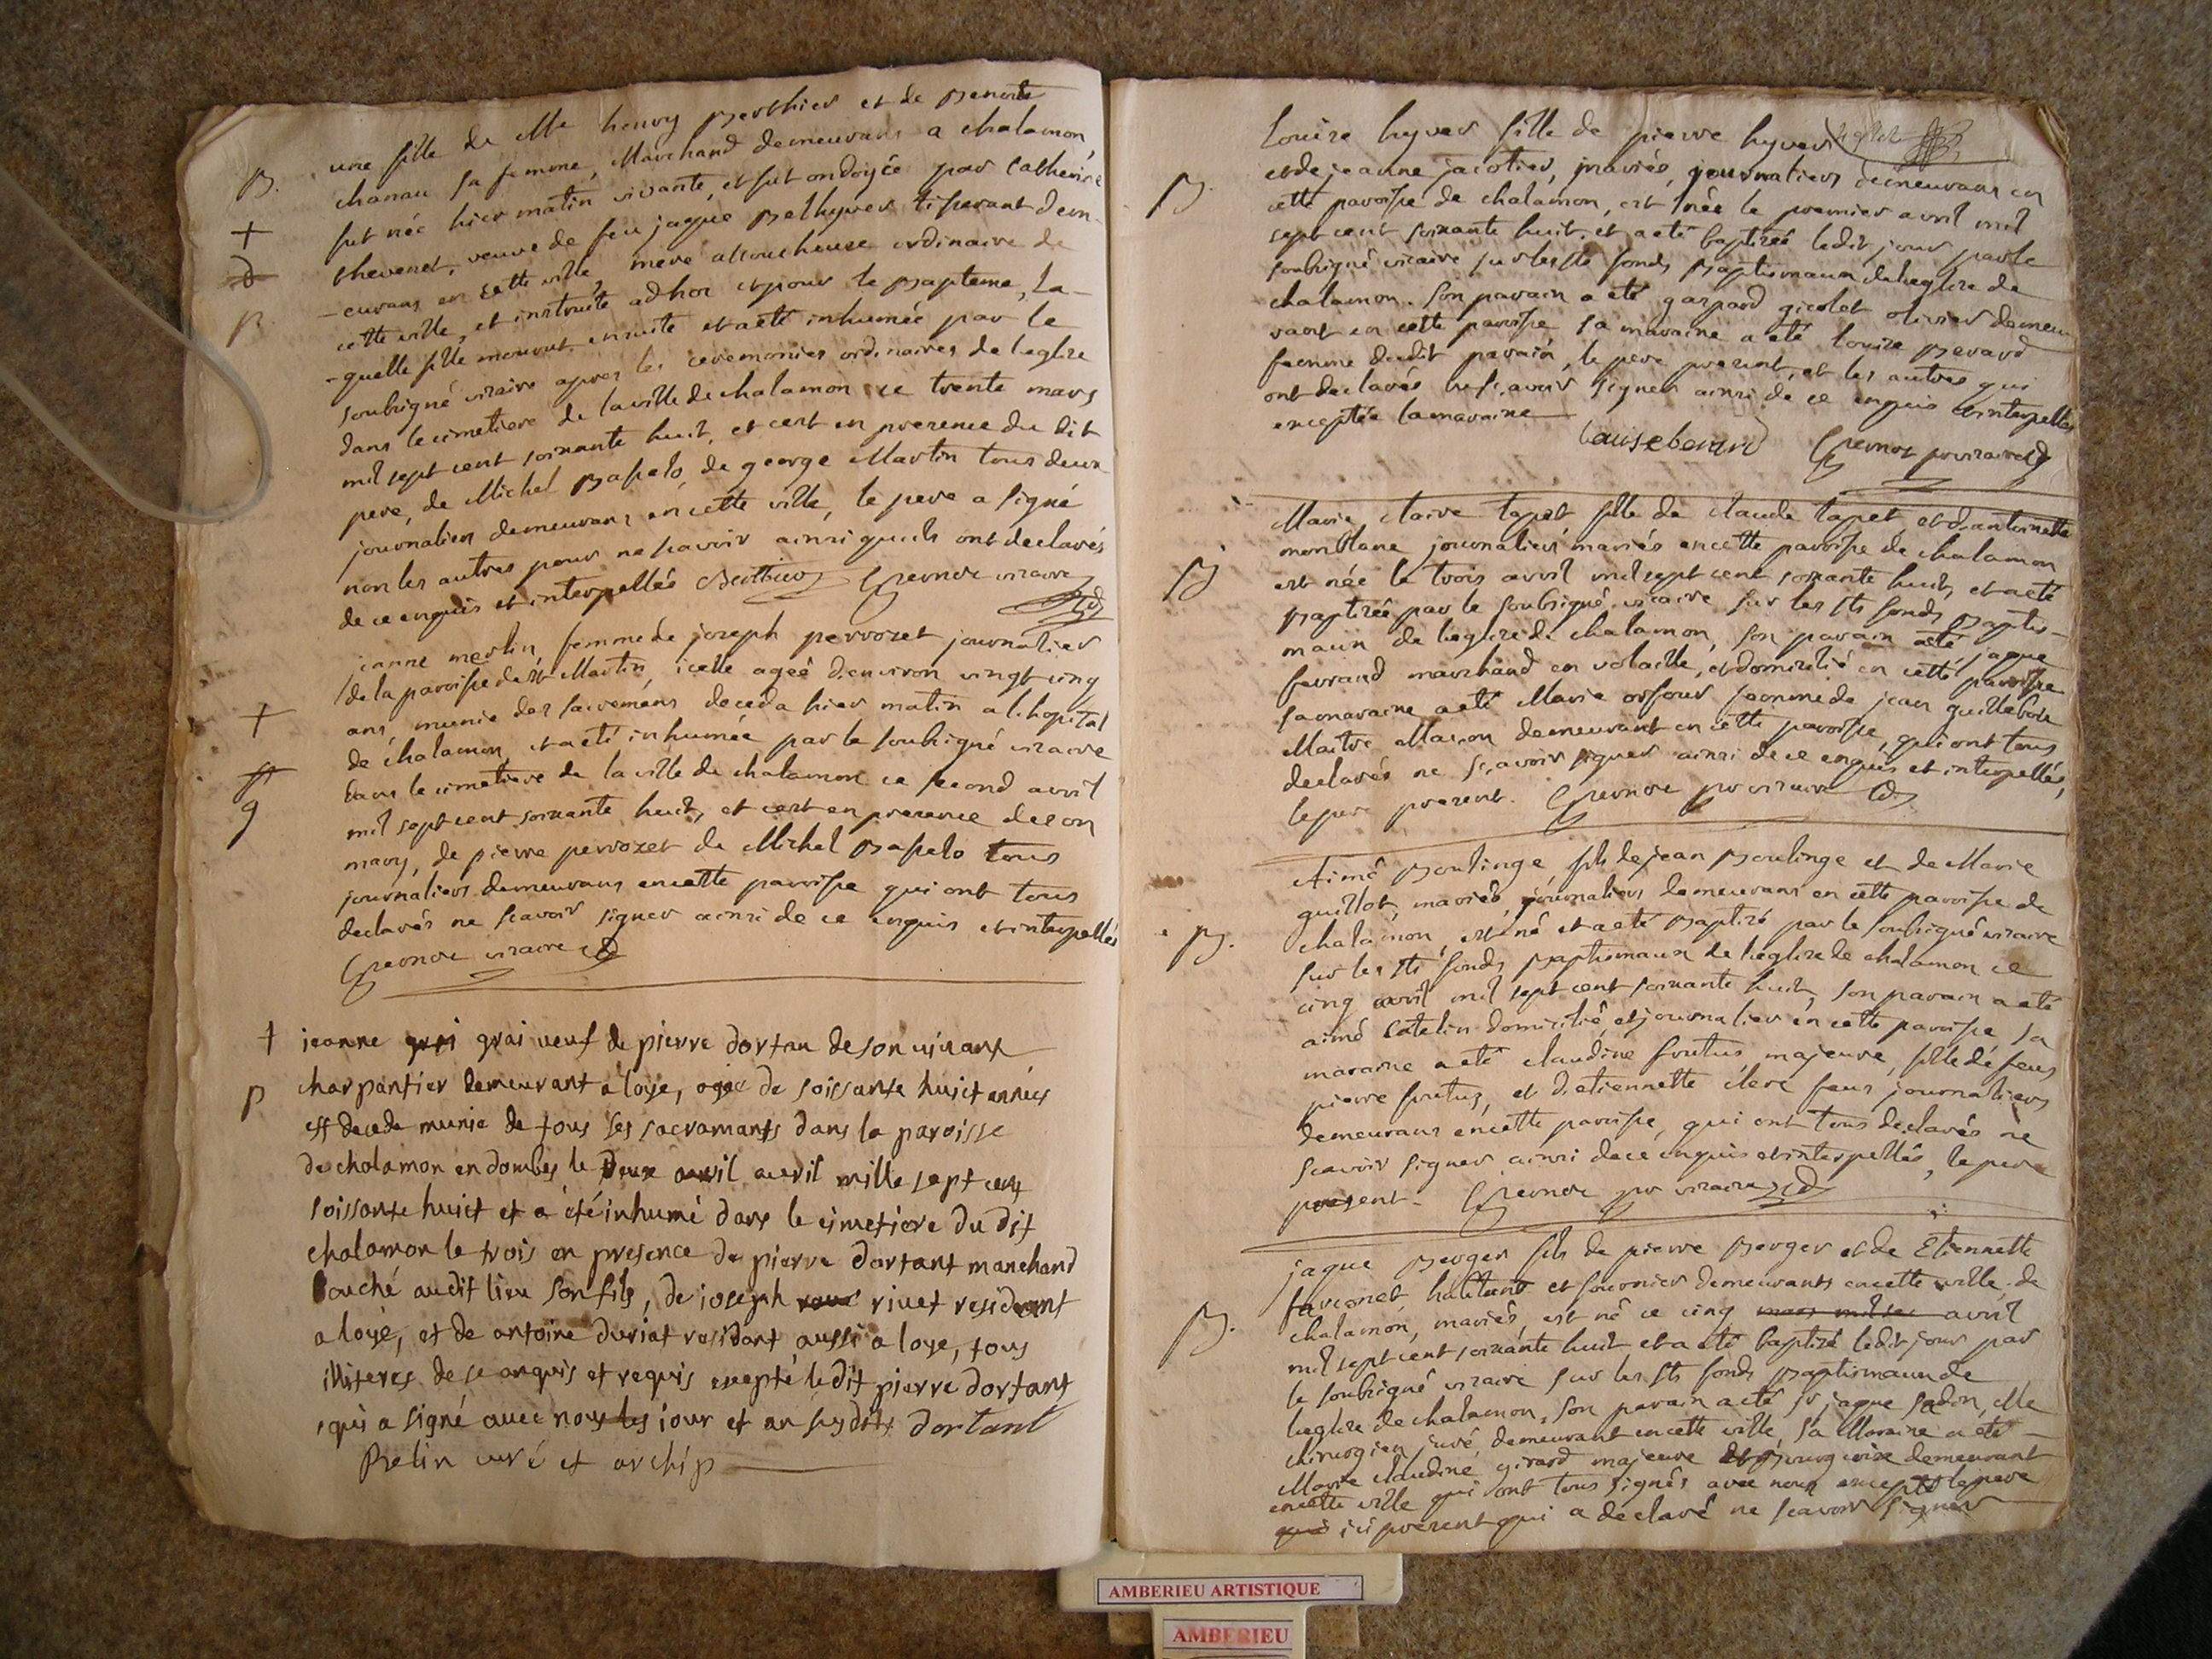 une fille de Me henry Berthier et de Benoite
B. chanau sa femme, Marchand demeurans a chalamon,
fut née hier matin vivante, et fut ondoyée par Catherine
+ thevenet, veuve de feu jaque Belhyver tisserant dem-
-eurans en cette ville, mere accoucheuse ordinaire de
cette ville, et instruite ad hoc et pour le Bapteme, la-
-quelle fille mourut ensuite et a eté inhumée par le
soubsigné vicaire apres les ceremonies ordinaires de leglise
dans le cimetiere de la ville de chalamon ce trente mars
mil sept cent soixante huit, et cest en presence du dit
pere, de Michel Bapelo, de george Martin tous deux
journaliers demeurans en cette ville, le pere a signé
non les autres pour ne scavoir ainsi quils ont declarés
de ce enquis et interpellés Berthier vicaire
janne merlin femme de joseph perrozet journalier
de la paroisse de st Martin, icelle agée denviron vingt cinq
+ ans, munie des sacremens deceda hier matin a lhopital
de chalamon, et a eté inhumée par le soubsigné vicaire
dans le cimetiere de la ville de chalamon ce second avril
g mil sept cent soixante huit, et cest en presence de son
mary, de pierre perrozet de Michel Bapelo tous
journaliers demeurans en cette paroisse qui ont tous
declarés ne scavoir signer ainsi de ce enquis et interpellés
vicaire
+ jeanne grai veuf de pierre dortan de son vivant
p charpantier demeurant a loye, agée de soissante huict années
est decede munie de tous ses sacramants dans la paroisse
de chalamon en dombes le deux avril mille sept cent
soissante huict et a été inhumé dans le cimetiere du dit
chalamon le trois en presence de pierre dortant marchand
bouché audit lieu son fils, de joseph rivet residant
a loye, et de antoine duriat residant aussi a loye, tous
illiteres de se anquis et requis excepté le dit pierre dortant
qui a signé avec nous les jour et an susdits dortant
Belin curé et archip
Louise hyver fille de pierre hyver
et de jeanne jacotier, mariés, journaliers demeurans en
B cette paroisse de chalamon, est née le premier avril mil
sept cent soixante huit, et a eté baptizée ledit jour par le
soubsigné vicaire sur les sts fonds Baptismaux de leglise de
chalamon. Son parain a eté gaspard gicolet olivier demeu
rant en cette paroisse sa maraine a eté Louise Berard
femme dudit parain, le pere present, et les autres qui
ont declarés ne scavoir signer ainsi de ce enquis et interpellés
exceptée la maraine
Louise berard
Marie claire tapet fille de claude tapet et dantoinette
monblanc journaliers mariés en cette paroisse de chalamon
B est née le trois avril mil sept cent soixante huit, et a eté
Baptizée par le soubsigné vicaire sur les sts fonds Baptis-
maux de leglise de chalamon, son parain a eté jaque
ferrand marchand en volaille, et domicilié en cette paroisse
sa maraine a eté Marie femme de jean
Maitre Maçon demeurant en cette paroisse, qui ont tous
declarés ne scavoir signer ainsi de ce enquis et interpellés,
le pere present. vicaire
Aimé Boulinge, fils de jean Boulinge et de Marie
guillot, mariés, journaliers demeurans en cette paroisse de
B. chalamon, est né et a eté Baptizé par le soubsigné vicaire
sur les sts fonds Baptismaux de leglise de chalamon ce
cinq avril mil sept cent soixante huit, son parain a eté
aimé Catelin domicilié, et journalier en cette paroisse sa
maraine a eté claudine frutus majeure, fille de feus
pierre frutus, et detiennette clere feus journaliers
demeurans en cette paroisse, qui ont tous declarés ne
scavoir signer ainsi de ce enquis et interpellés, le pere
present. vicaire
jaque Berger fils de pierre Berger et de Etiennette
farconet habitant et demeurants en cette ville de
B. chalamon, mariés, est né ce cinq avril
mil sept cent soixante huit et a eté baptizé ledit jour par
le soubsigné vicaire sur les sts fonds Baptismaux de
leglise de chalamon, son parain a eté sr jaque sadon, Me
chirurgien juré, demeurant en cette ville, sa Maraine a eté
Marie claudine girard majeure Bourgeoise demeurant
en cette ville qui ont tous signés avec nous excepté le pere
ici present qui a declaré ne scavoir signer
AMBERIEU ARTISTIQUE
AMBERIEU